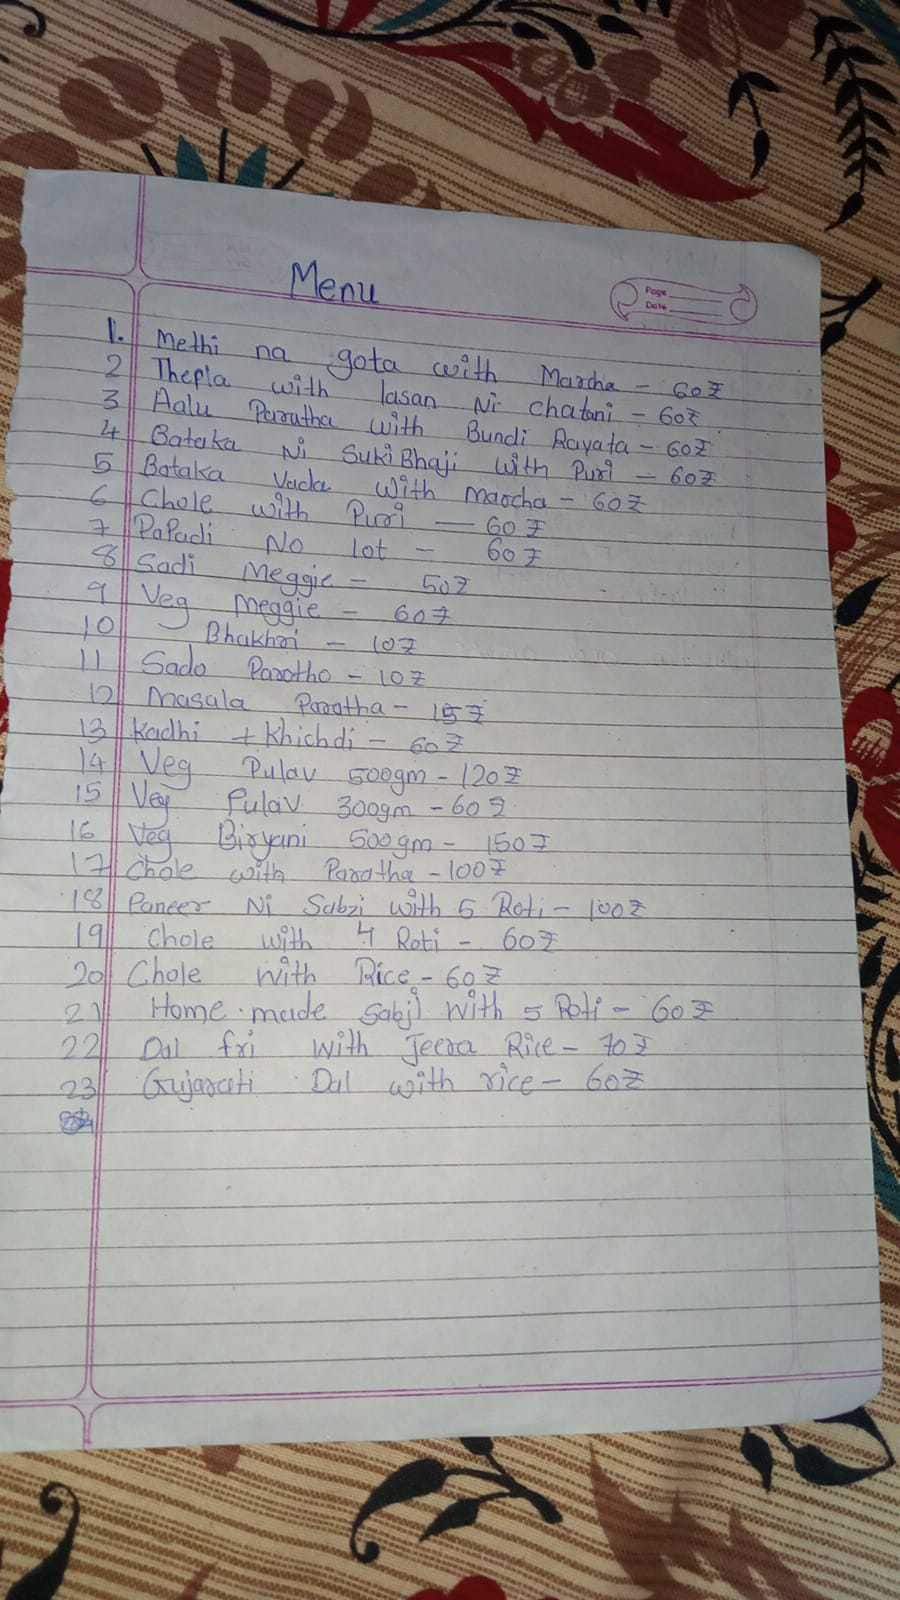 Menu
Page
Date
1. Methi na gota with Marcha - 60₹
2 Thepla with lasan Ni chatani - 60₹
3 Aalu Paratha with Bundi Rayata - 60₹
4 Bataka Ni Suki Bhaji with Puri - 60₹
5 Bataka Vada with marcha - 60₹
6 Chole with Puri - 60₹
7 Papadi No lot - 60₹
8 Sadi Meggie - 50₹
9 Veg Meggie - 60₹
10 Bhakhri - 10₹
11 Sado Parotho - 10₹
12 Masala Paratha - 15₹
13 Kadhi + Khichdi - 60₹
14 Veg Pulav 500gm - 120₹
15 Veg Pulav 300gm - 60₹
16 Veg Biryani 500gm - 150₹
17 Chole with Paratha - 100₹
18 Paneer Ni Sabzi with 5 Roti - 100₹
19 Chole with 4 Roti - 60₹
20 Chole With Rice - 60₹
21 Home made Sabji With 5 Roti - 60₹
22 Dal fri With Jeera Rice - 70₹
23 Gujarati Dal with rice - 60₹